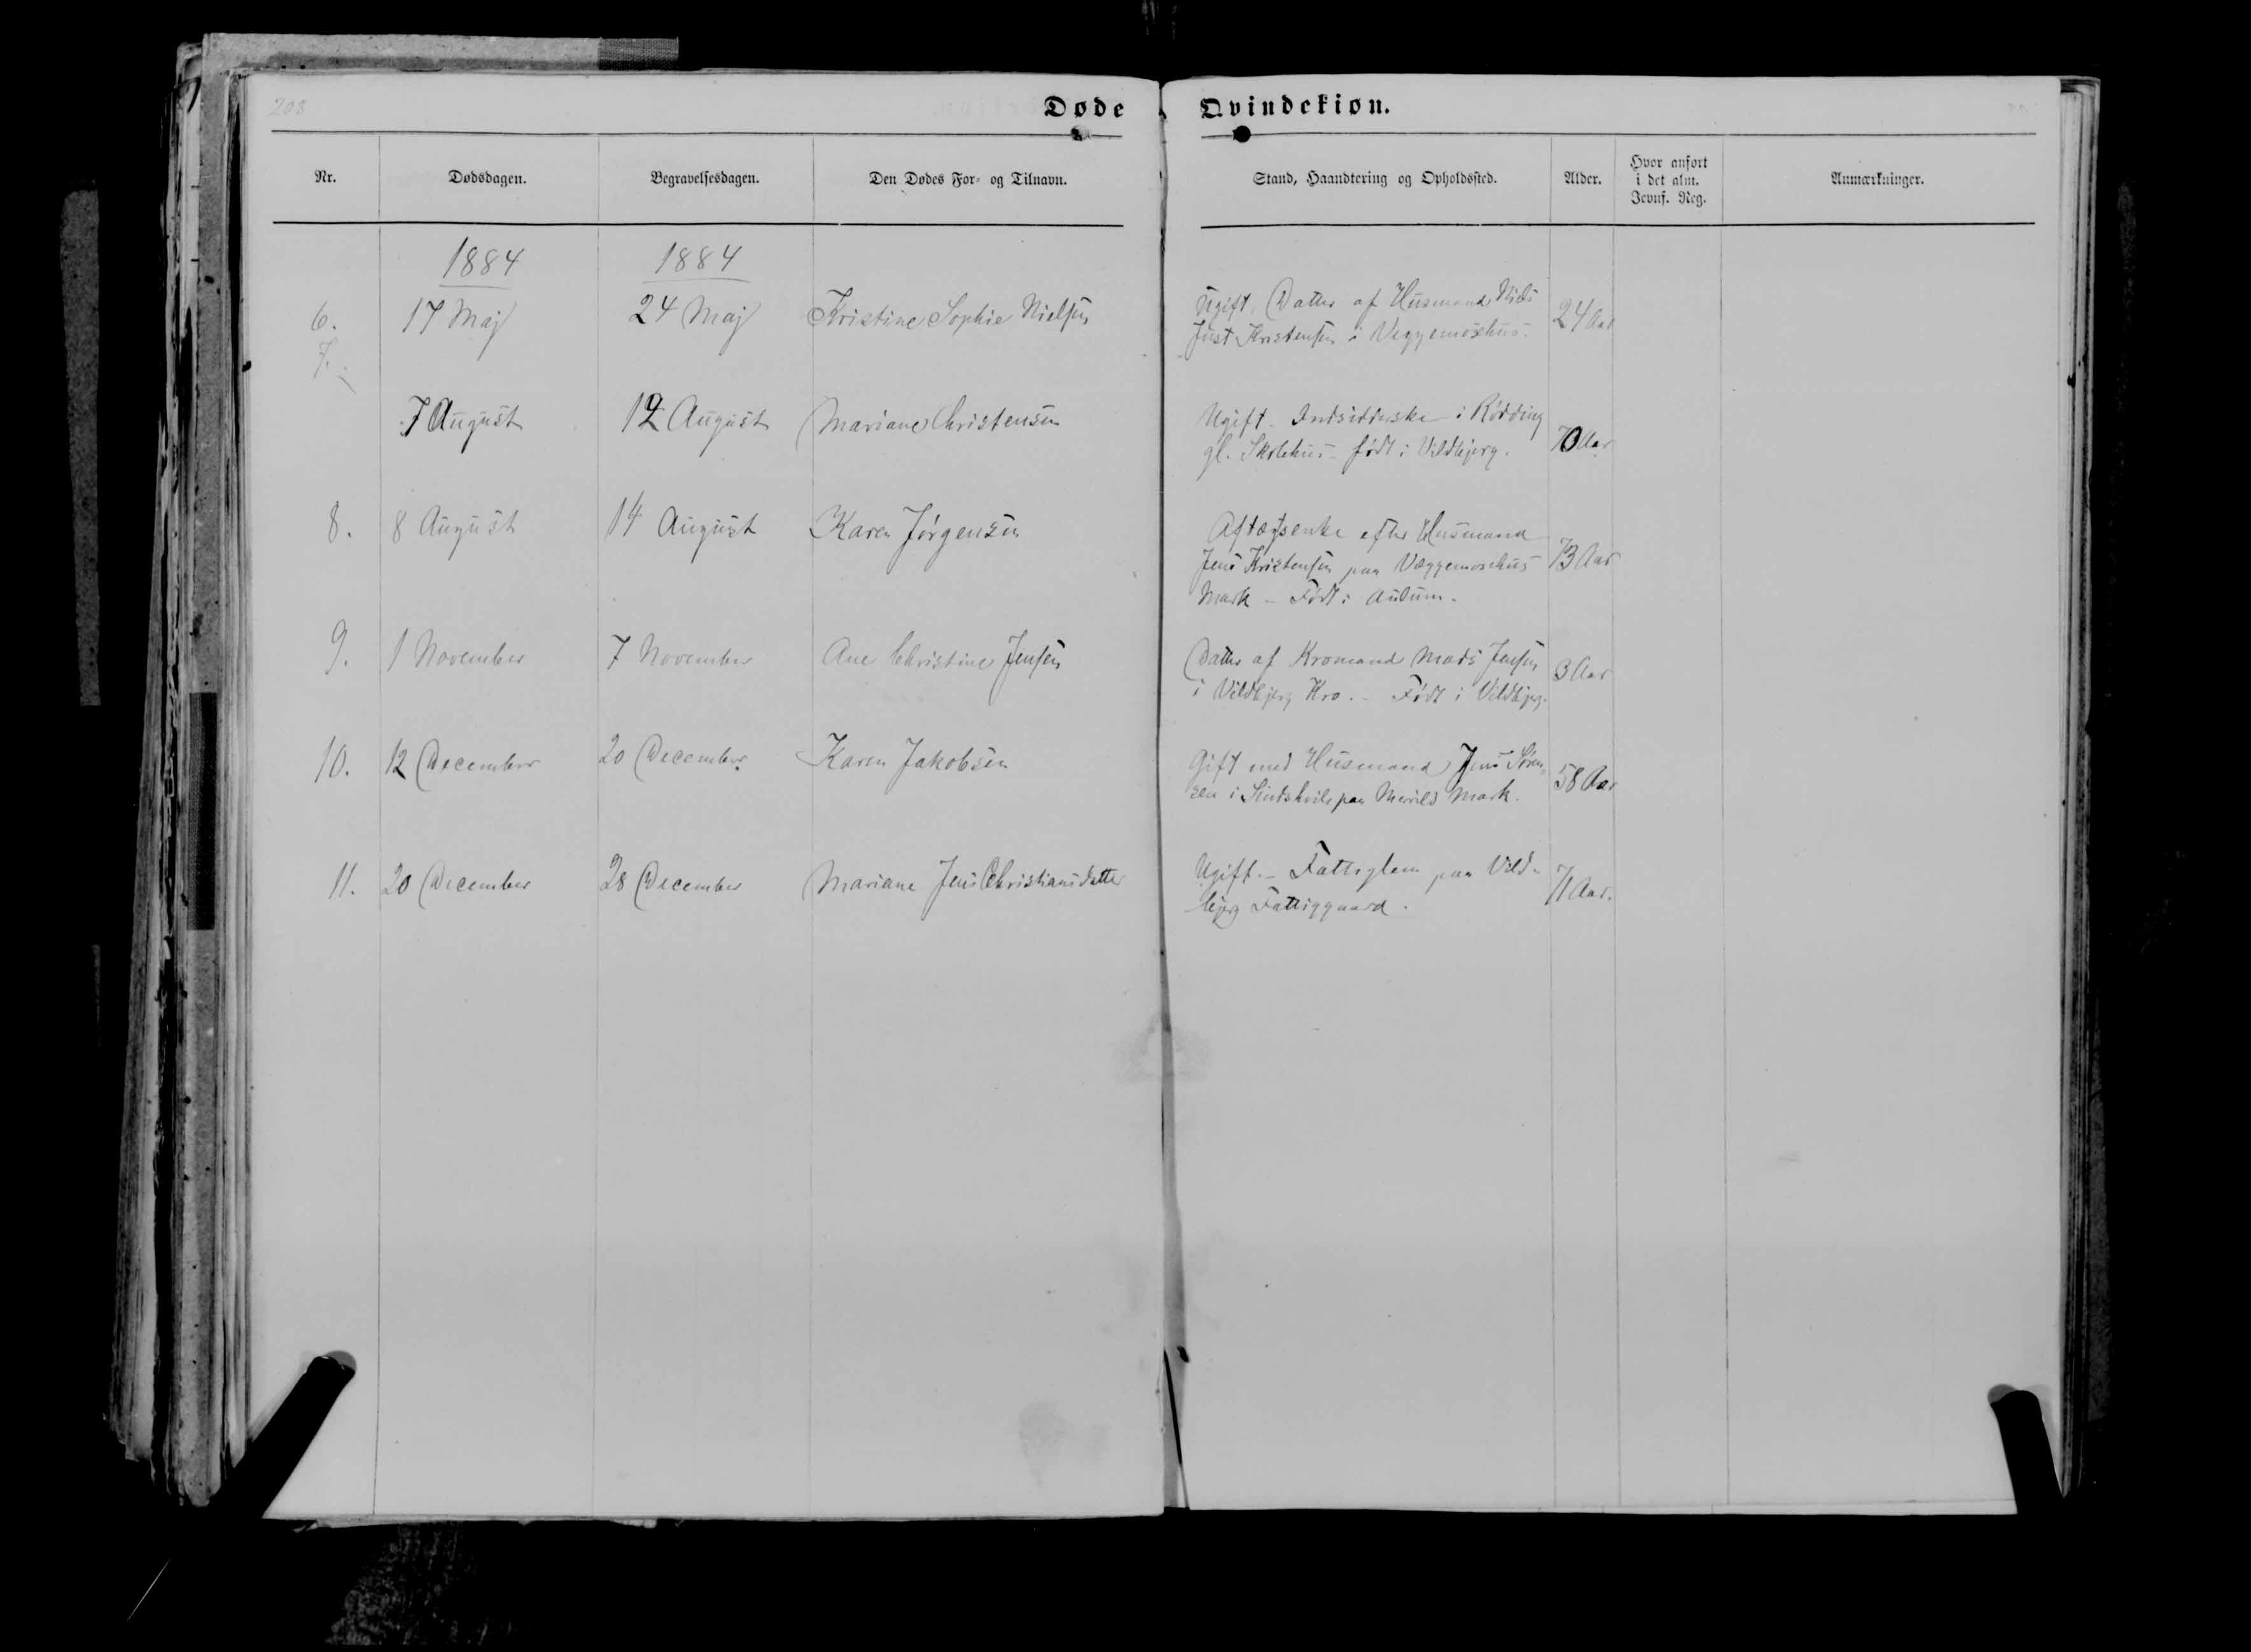 208
Døde Qvindekiøn.
Nr. Dødsdagen. Begravelsesdagen. Den Dødes For- og Tilnavn. Stand, Haandtering og Opholdssted. Alder. Hvor anført
i det alm.
Jevnf. Reg.
Anmærkninger.
1884 1884
6. 17 Maj 24 Maj Kristine Sophie Nielsen Ugift, Datter af Husmand Niels 24 Aar
Just Kristensen i Veggemosehus.
7. 7 August 12 August Mariane Christensen Ugift. Indsidderske i Rødding 70 Aar
gl. Skolehus - født i Vildbjerg.
8. 8 August 14 August Karen Jørgensen Aftægtsenke efter Husmand 73 Aar
Jens Kristensen paa Væggemosehus
Mark - Født i Aulum.
9. 1 November 7 November Ane Christine Jensen Datter af Kromand Mads Jensen 3 Aar
i Vildbjerg Kro. - Født i Vildbjerg.
10. 12 December 20 December Karen Jakobsen Gift med Husmand Jens Søren- 58 Aar
sen i paa Merrild Mark.
11. 20 December 28 December Mariane Jens Christiansdatter Ugift. - Fattiglem paa Vild- 71 Aar.
bjerg Fattiggaard.